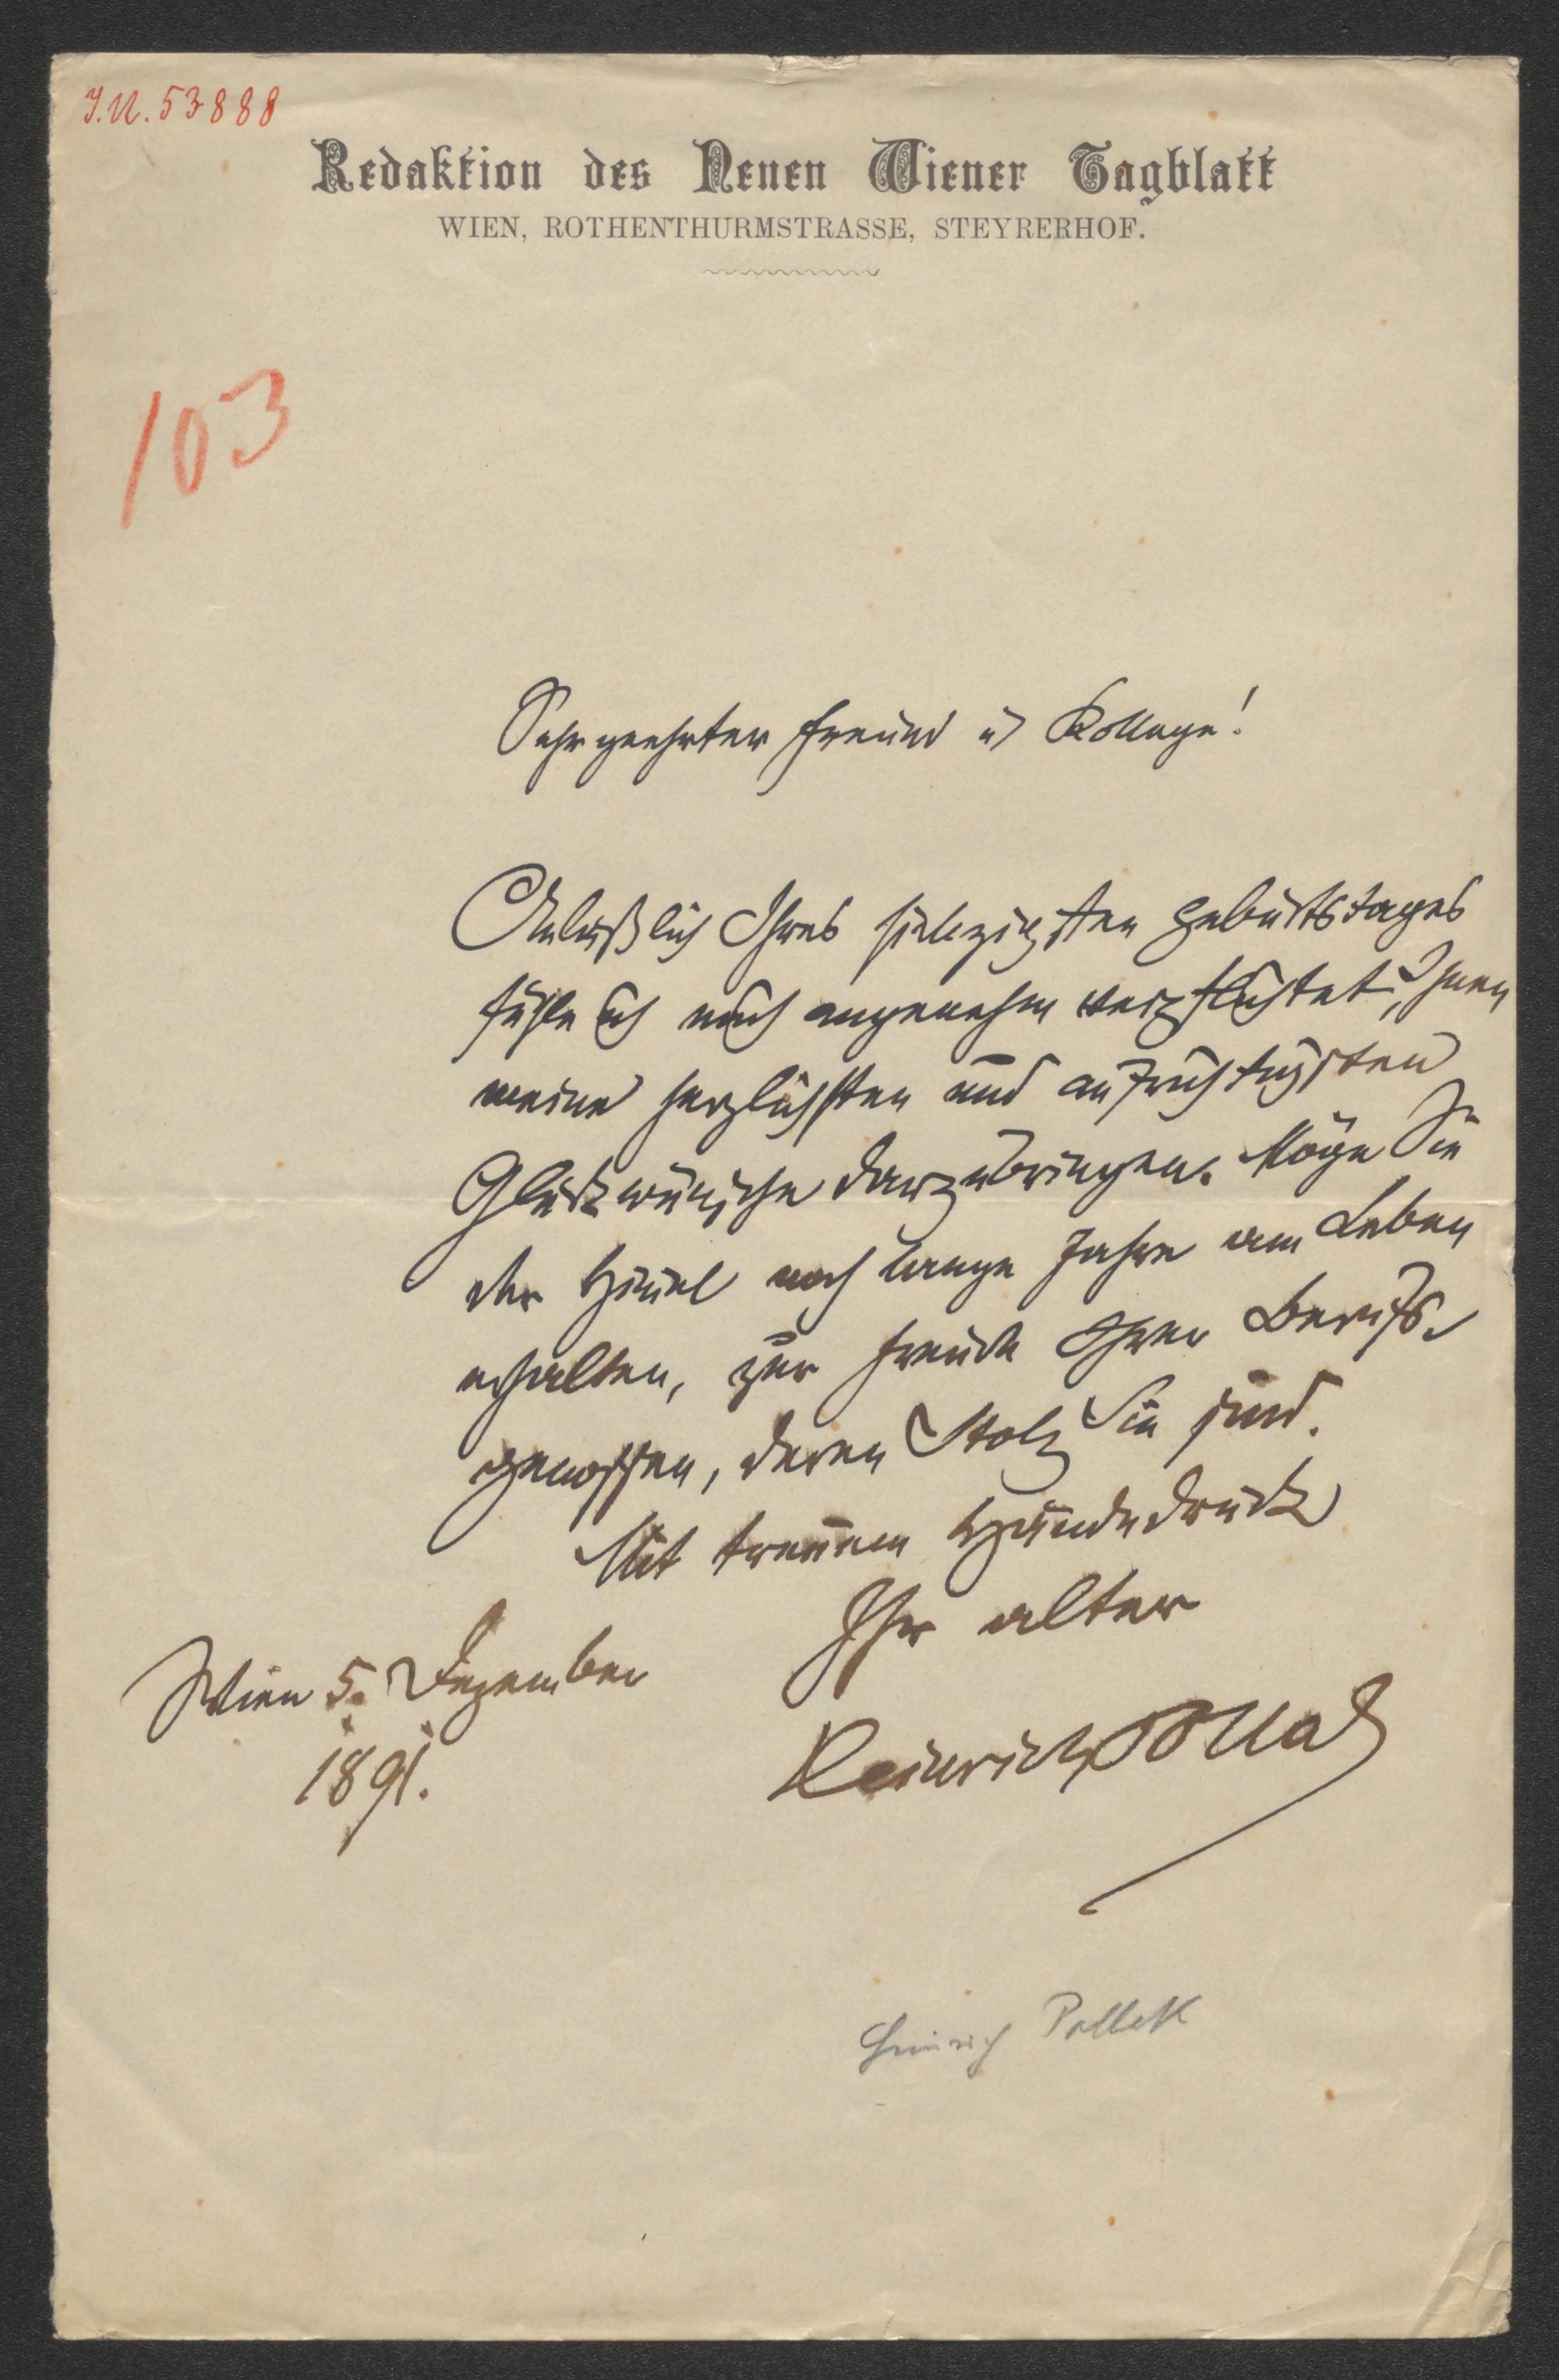 I.N. 53888
Redaktion des Neuen Wiener Tagblatt
WIEN, ROTHENTHURMSTRASSE, STEYRERHOF.
103
Sehr geehrter Freund u Kollege!
Anläßlich Ihres siebzigsten Geburtstages
fühle ich mich angenehm verpflichtet, Ihnen
meine herzlichsten und aufrichtigsten
Glückwünsche darzubringen. Möge Sie
der Himel noch lange Jahre am Leben
erhalten, zur Freude Ihrer Berufs-
genossen, deren Stolz Sie sind.
Mit treuem Händedruck
Ihr alter
Wien 5. Dezember
1891.
Heinrich Pollak
Heinrich Pollak